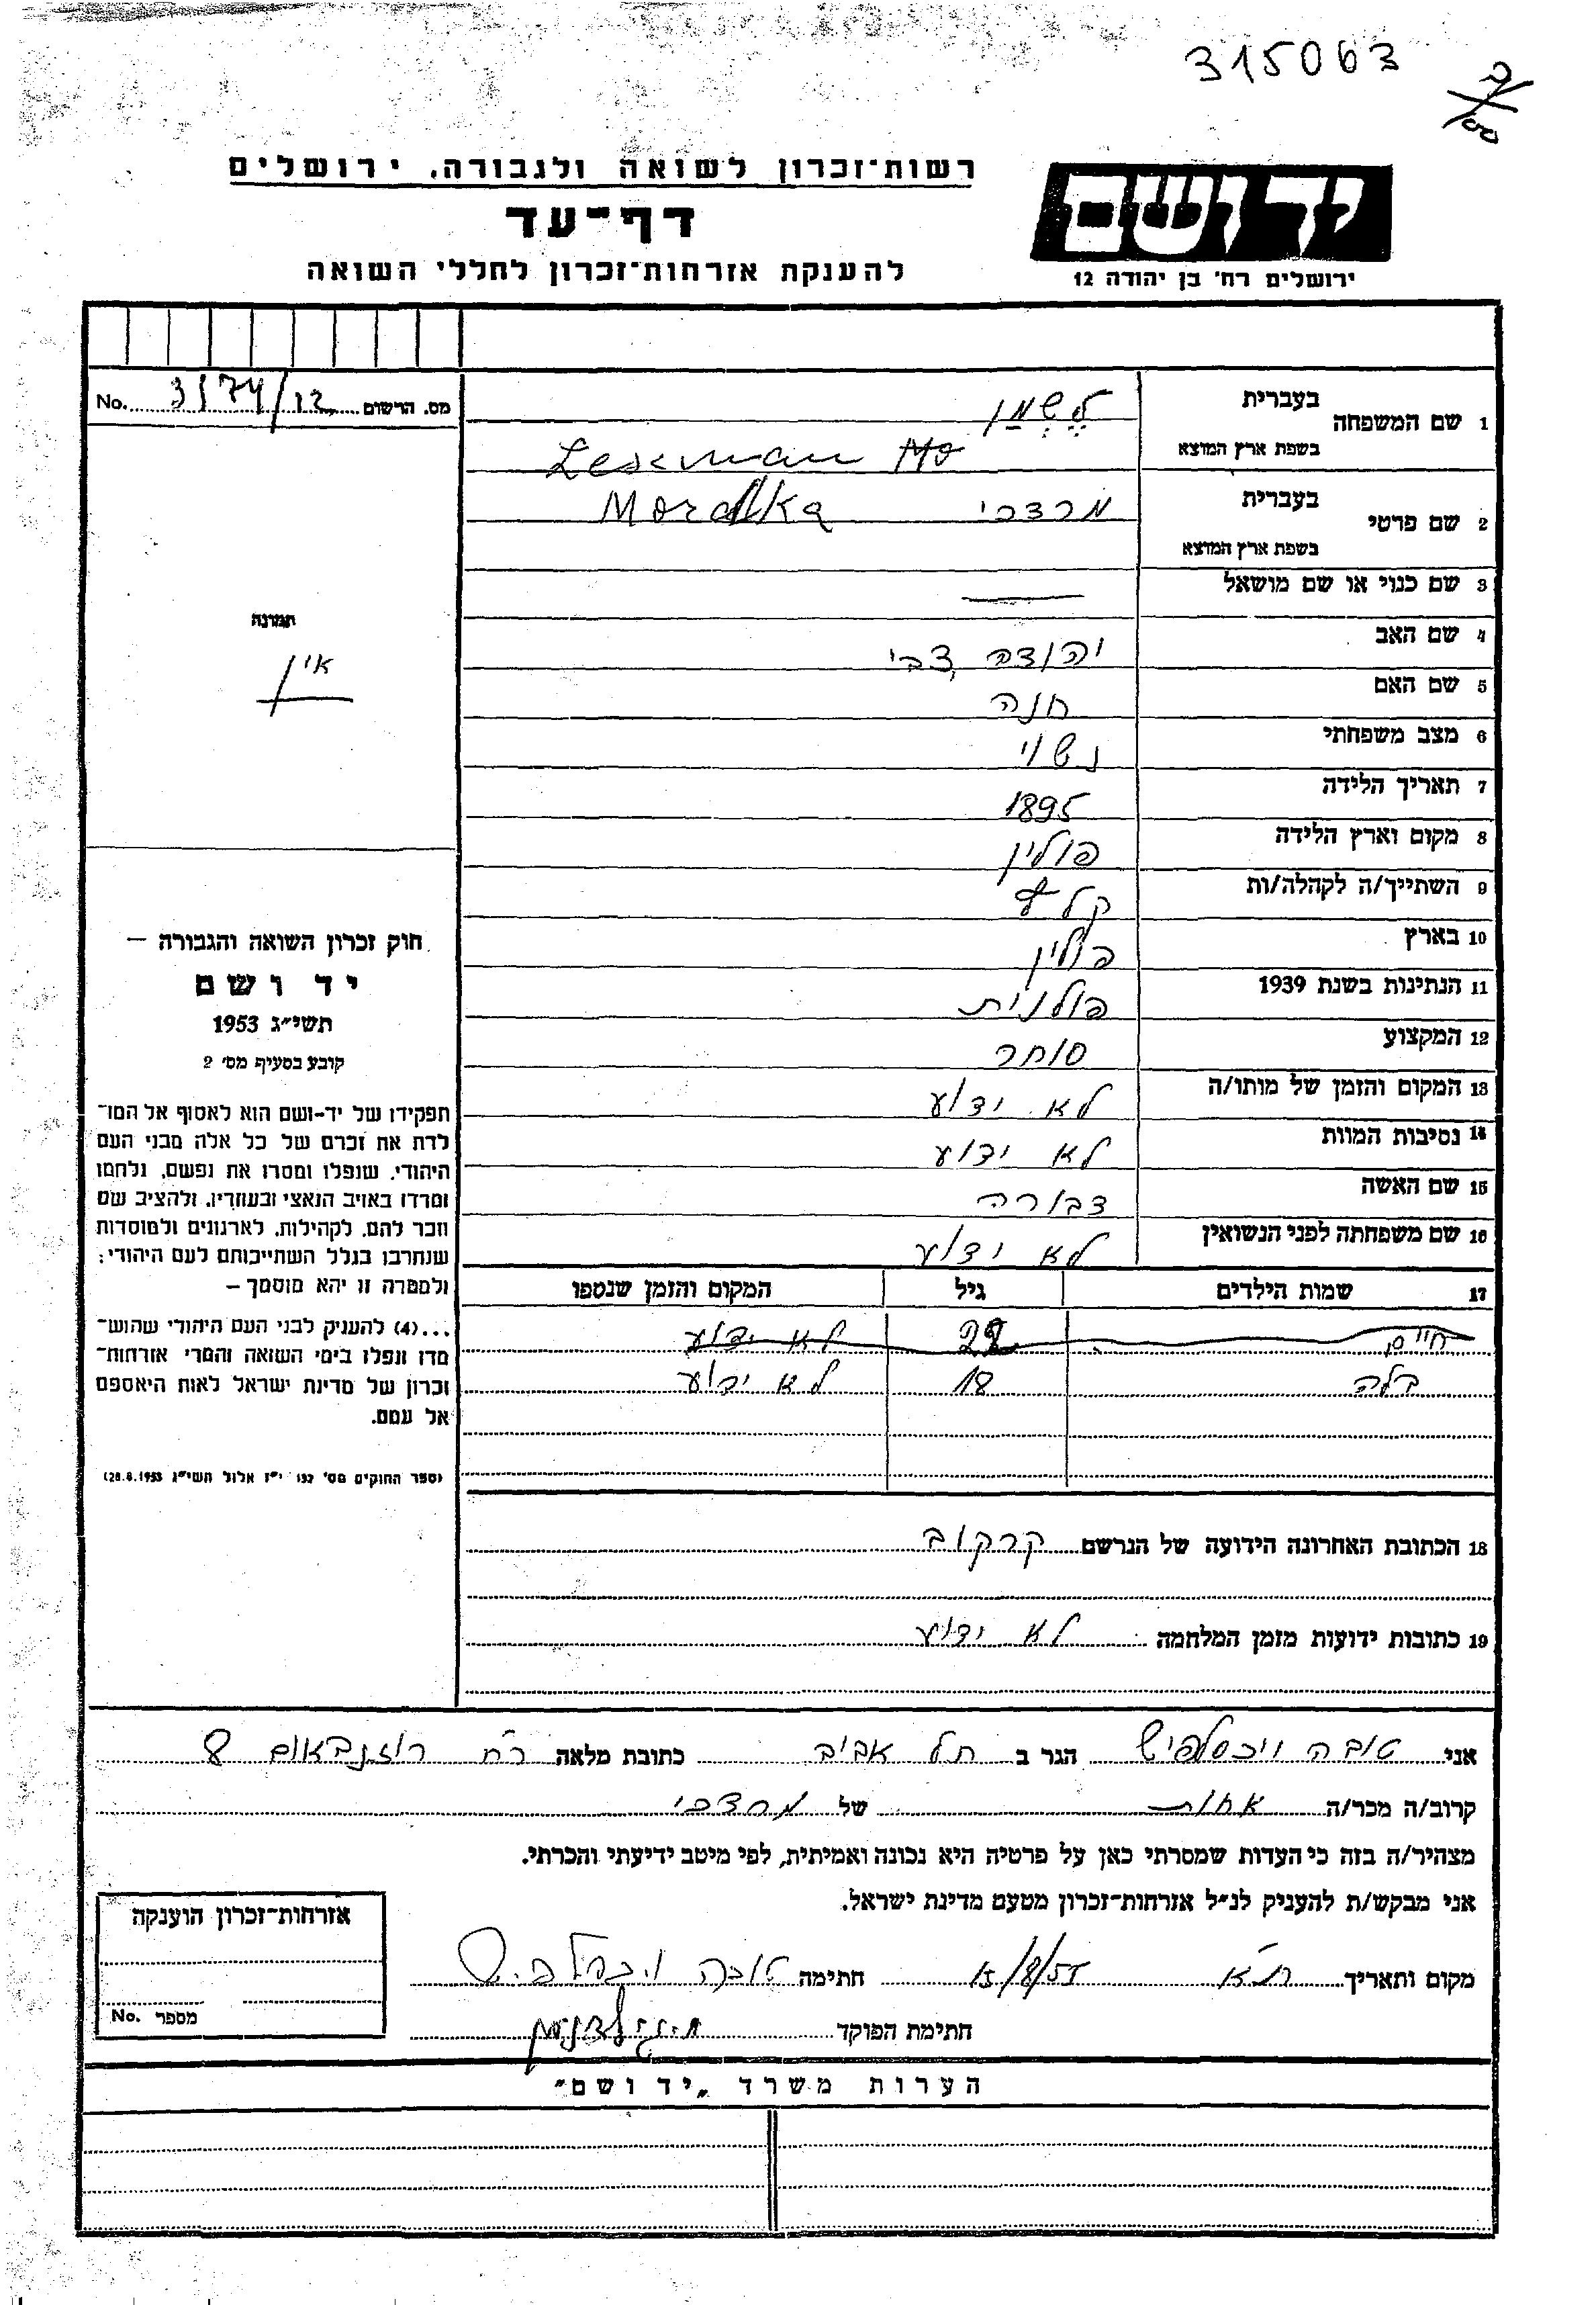 315063
רשות־זכרון לשואה ולגבורה, ירושלים
יד ושם
דף־עד
להענקת אזרחות־זכרון לחללי השואה
ירושלים רח' בן יהודה 12
מס. הרשום No. 3174/12
1 שם המשפחה
בעברית לֶשְמַן
בשפת ארץ המוצא Leserman
2 שם פרטי
בעברית מרדכי Mordka
בשפת ארץ המוצא
3 שם כנוי או שם מושאל —
4 שם האב יהודה צבי
5 שם האם חנה
6 מצב משפחתי נשוי
7 תאריך הלידה 1895
8 מקום וארץ הלידה פולין
9 השתייך/ה לקהלה/ות
10 בארץ פולין
11 הנתינות בשנת 1939 פולנית
12 המקצוע סוחר
13 המקום והזמן של מותו/ה לא ידוע
14 נסיבות המוות לא ידוע
15 שם האשה דבורה
16 שם משפחתה לפני הנשואין לא ידוע
17 שמות הילדים גיל המקום והזמן שנספו
חיים לא ידוע
בלה 18 לא ידוע
18 הכתובת האחרונה הידועה של הנרשם קרקוב
19 כתובות ידועות מזמן המלחמה לא ידוע
תמונה
אין
חוק זכרון השואה והגבורה —
יד ושם
תשי״ג 1953
קובע בסעיף מס' 2
תפקידו של יד-ושם הוא לאסוף אל המו־
לדת את זכרם של כל אלה מבני העם
היהודי, שנפלו ומסרו את נפשם, נלחמו
ומרדו באויב הנאצי ובעוזריו, ולהציב שם
וזכר להם, לקהילות, לארגונים ולמוסדות
שנחרבו בגלל השתייכותם לעם היהודי;
ולמטרה זו יהא מוסמך —
...(4) להעניק לבני העם היהודי שהוש־
מדו ונפלו בימי השואה והמרי אזרחות־
זכרון של מדינת ישראל לאות היאספם
אל עמם.
(ספר החוקים מס' 132 י״ז אלול תשי״ג 28.8.1953)
אני טובה הגר ב תל אביב כתובת מלאה רח' רוזנבאום 8
קרוב/ה מכר/ה אחות של מרדכי
מצהיר/ה בזה כי העדות שמסרתי כאן על פרטיה היא נכונה ואמיתית, לפי מיטב ידיעתי והכרתי.
אני מבקש/ת להעניק לנ״ל אזרחות־זכרון מטעם מדינת ישראל.
מקום ותאריך ת״א 15/8/55 חתימה טובה
חתימת הפוקד
אזרחות־זכרון הוענקה
מספר No.
הערות משרד „יד ושם״